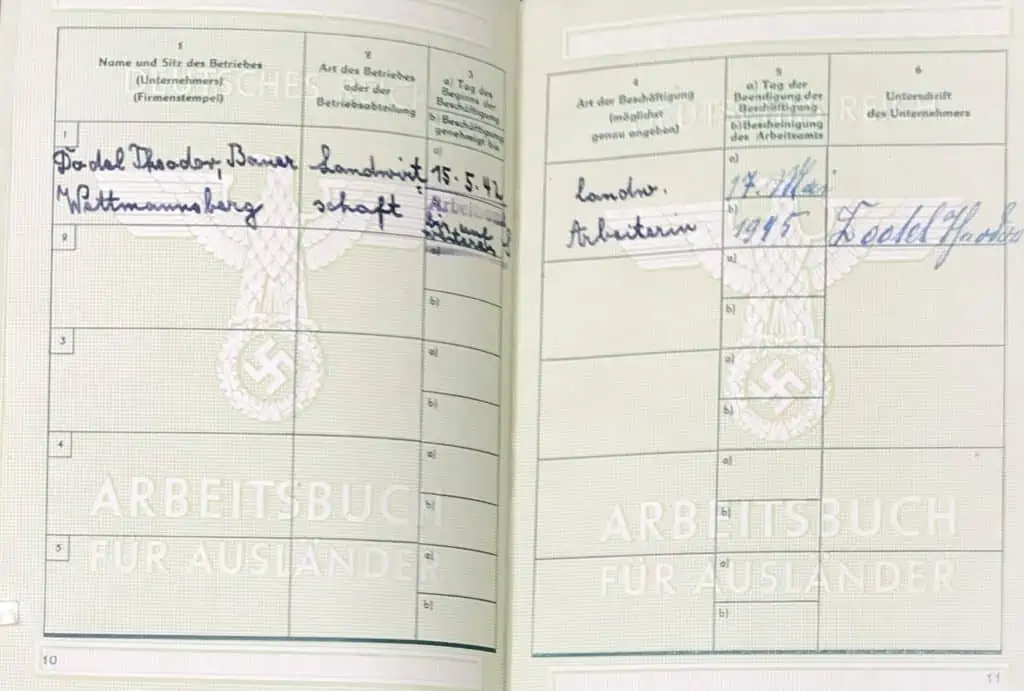 1
Name und Sitz des Betriebes
(Unternehmers)
(Firmenstempel)
2
Art des Betriebes
oder der
Betriebsabteilung
3
a) Tag des
Beginns der
Beschäftigung
b) Beschäftigung
genehmigt bis
DEUTSCHES
1
Dodel Theodor, Bauer
Wettmannsberg
Landwirt-
schaft
a)
15.5.42
bis auf
weiteres
2
a)
b)
3
a)
b)
4
a)
b)
5
a)
b)
ARBEITSBUCH
FÜR AUSLÄNDER
10
4
Art der Beschäftigung
(möglichst
genau angeben)
5
a) Tag der
Beendigung der
Beschäftigung
b) Bescheinigung
des Arbeitsamts
6
Unterschrift
des Unternehmers
REICH
landw.
Arbeiterin
a)
17. Mai
b)
1945
Dodel Theodor
a)
b)
a)
b)
a)
b)
a)
b)
ARBEITSBUCH
FÜR AUSLÄNDER
11